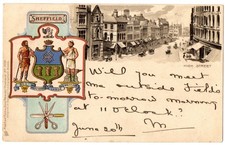 SHEFFIELD
HIGH STREET
Will you meet
me outside Fields
to-morrow morning
at 11 O'clock?
June 20th M